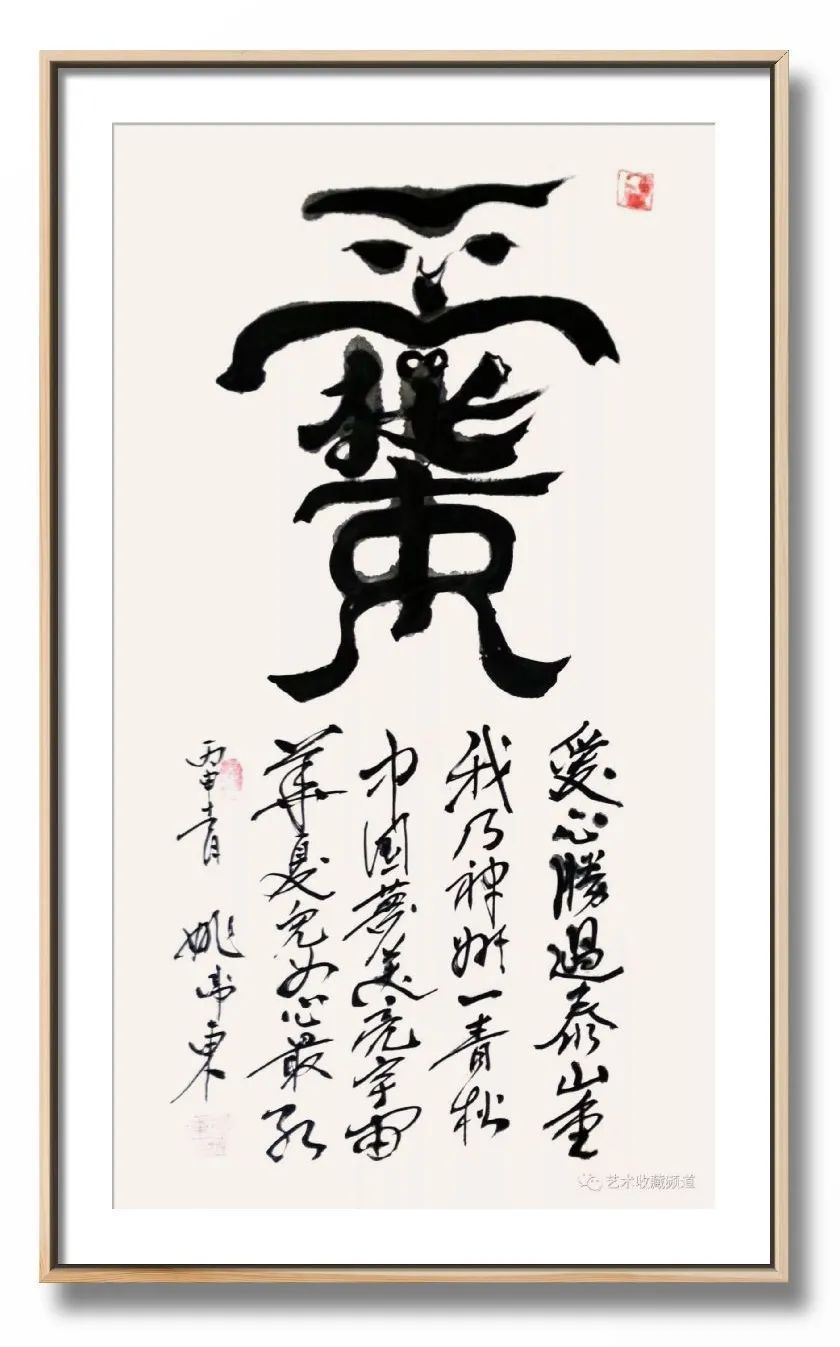 愛心勝過泰山重
我乃神州一青松
中國夢美亮宇宙
華夏兒女心最紅
丙申 青
姚韋東
艺术收藏频道